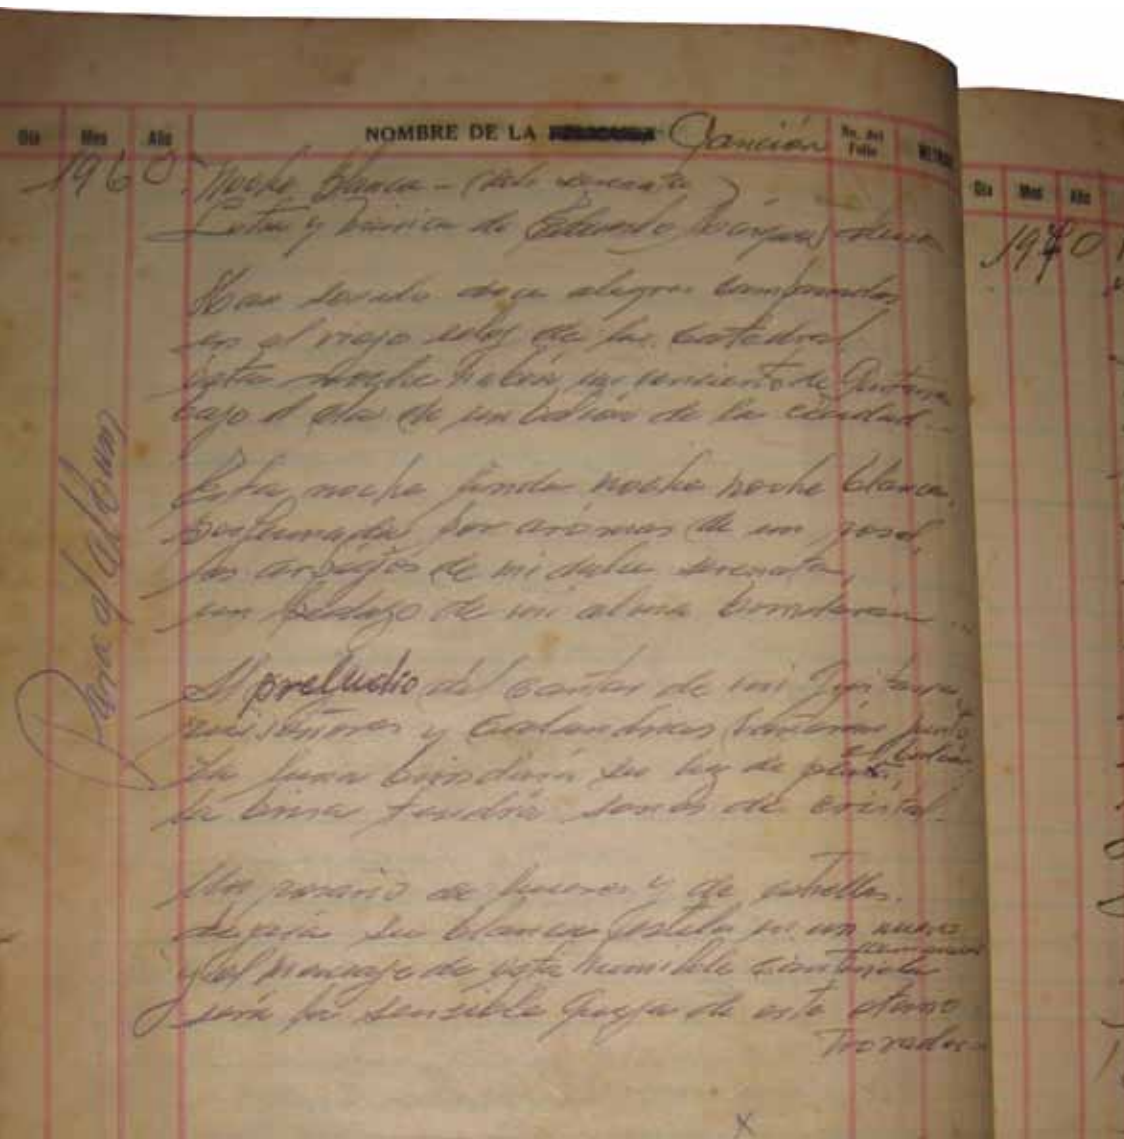 Día Mes Año NOMBRE DE LA Canción No. del Folio
1960. Noche blanca - (Vals serenata)
Letra y música de Eduardo Rodríguez
Han sonado doce alegres campanadas
en el viejo reloj de la catedral
esta noche habrá un concierto de guitarra
bajo el ala de un balcón de la ciudad...
Esta noche linda noche noche blanca,
perfumada por aromas de un rosal,
los arpegios de mi dulce serenata,
un pedazo de mi alma brindarán...
Al preludio del cantar de mi guitarra,
ruiseñores y calandrias cantarán junto
al balcón.
La luna brindará su luz de plata
la brisa tendrá sones de cristal.
Un rosario de luceros y de estrellas.
dejará su blanca estela en un nuevo
amanecer
y el mensaje de esta humilde cantinela
será la sensible queja de este eterno
trovador
Para el album
x
Día Mes Año
1970